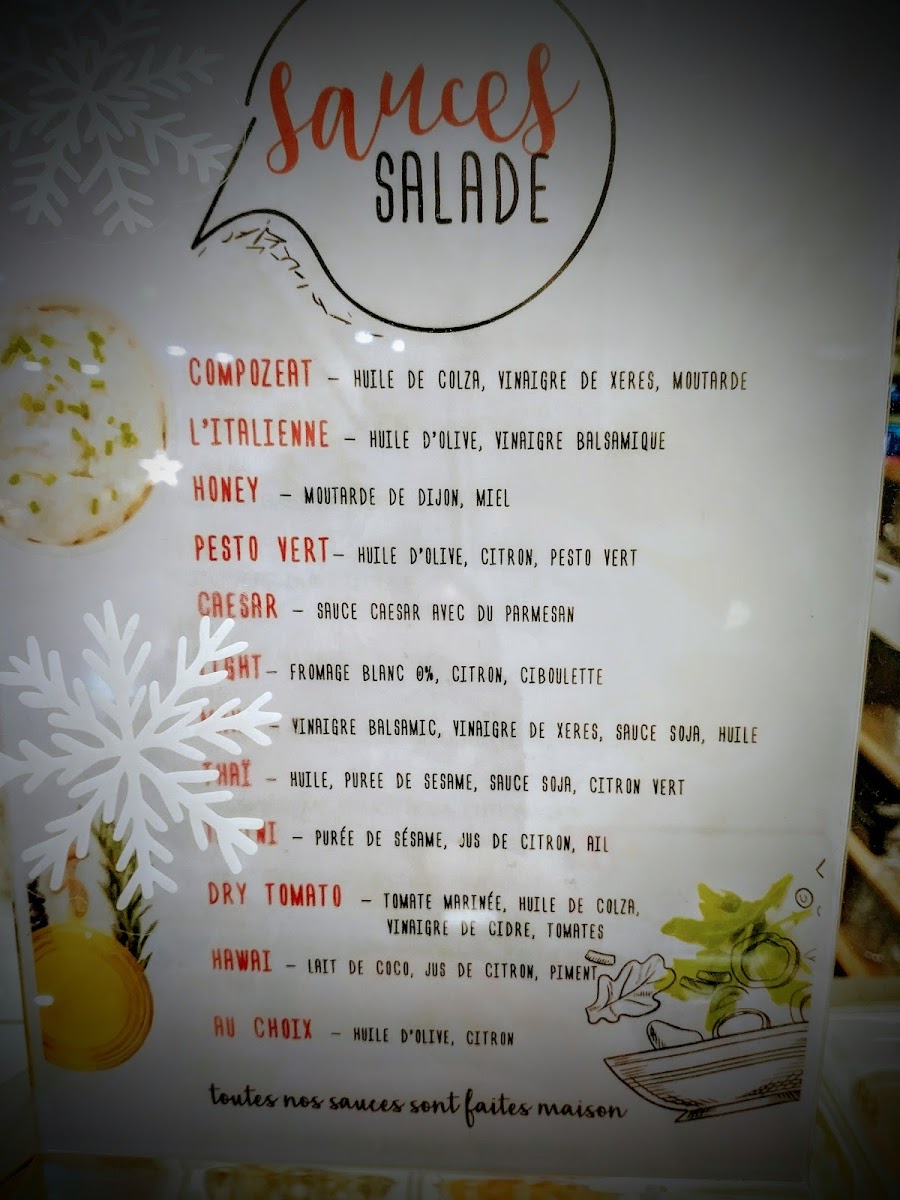 Sauces
SALADE
COMPOZEAT – HUILE DE COLZA, VINAIGRE DE XERES, MOUTARDE
L'ITALIENNE – HUILE D'OLIVE, VINAIGRE BALSAMIQUE
HONEY – MOUTARDE DE DIJON, MIEL
PESTO VERT – HUILE D'OLIVE, CITRON, PESTO VERT
CAESAR – SAUCE CAESAR AVEC DU PARMESAN
LIGHT – FROMAGE BLANC 0%, CITRON, CIBOULETTE
– VINAIGRE BALSAMIC, VINAIGRE DE XERES, SAUCE SOJA, HUILE
THAÏ – HUILE, PUREE DE SESAME, SAUCE SOJA, CITRON VERT
– PURÉE DE SÉSAME, JUS DE CITRON, AIL
DRY TOMATO – TOMATE MARINÉE, HUILE DE COLZA,
VINAIGRE DE CIDRE, TOMATES
HAWAI – LAIT DE COCO, JUS DE CITRON, PIMENT
AU CHOIX – HUILE D'OLIVE, CITRON
toutes nos sauces sont faites maison